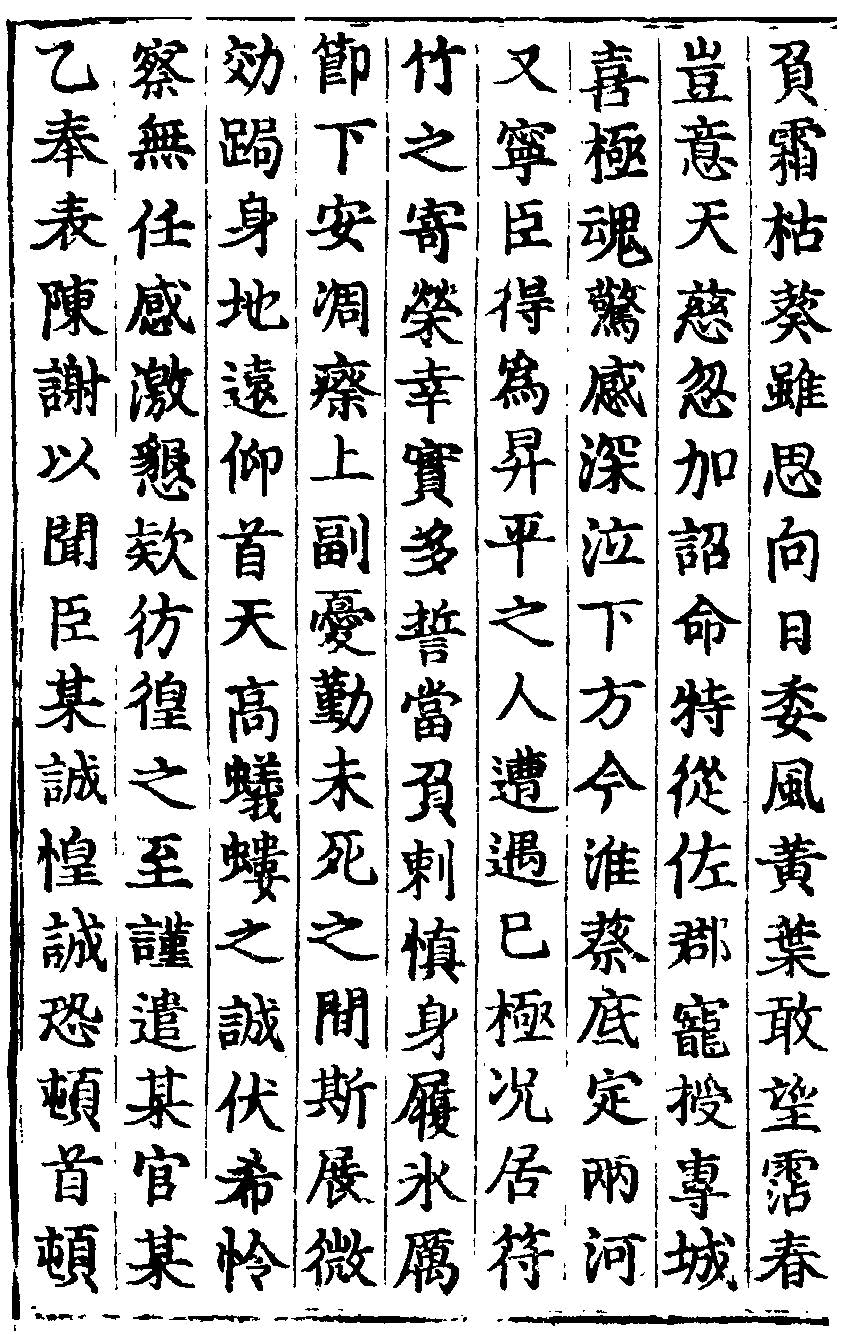 負霜枯葵雖思向日委風黃葉敢望霑春
豈意天慈忽加詔命特從佐郡寵授專城
喜極魂驚感深泣下方今淮蔡底定兩河
又寧臣得爲昇平之人遭遇已極况居符
竹之寄榮幸實多誓當負刺慎身履氷厲
節下安凋瘵上副憂勤未死之間斯展微
効跼身地遠仰首天高蟻螻之誠伏希怜
察無任感激懇欵彷徨之至謹遣某官某
乙奉表陳謝以聞臣某誠惶誠恐頓首頓